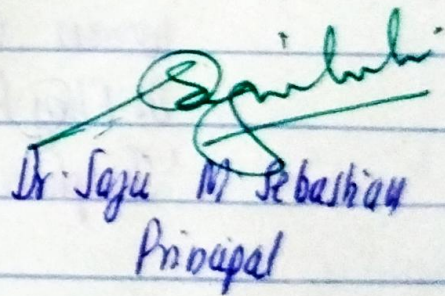 Dr. Saju M Sebastian
Principal